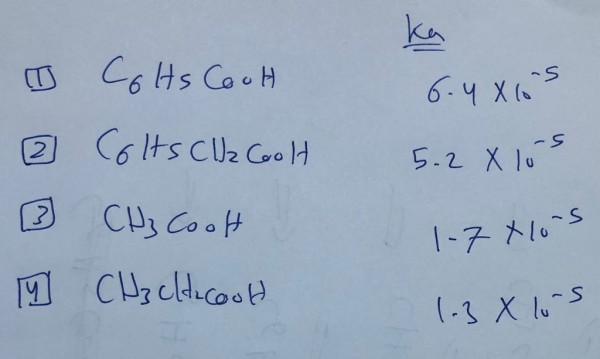 Ka
1 C6H5CooH 6.4 X 10-5
2 C6H5CH2CooH 5.2 X 10-5
3 CH3CooH 1.7 X 10-5
4 CH3CH2CooH 1.3 X 10-5